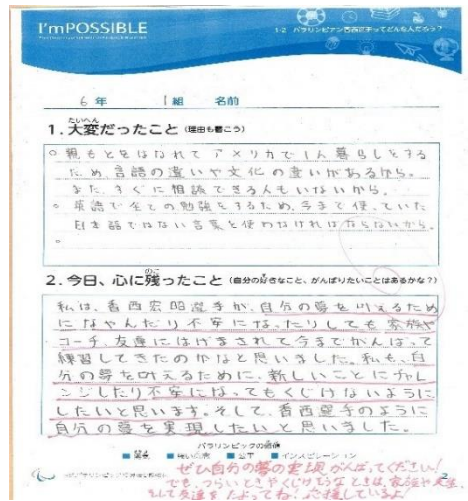 I'mPOSSIBLE
1-2 パラリンピアン香西選手ってどんな人だろう?
6年 1組 名前
1. 大変だったこと (理由も書こう)
たいへん
○ 親もとをはなれてアメリカで1人暮らしをする
ため、言語の違いや文化の違いがあるから。
また、すぐに相談できる人もいないから。
○ 英語で全ての勉強をするため、今まで使っていた
日本語ではない言葉を使わなければならないから。
○
2. 今日、心に残ったこと (自分の好きなこと、がんばりたいことはあるかな?)
のこ
私は、香西宏昭選手が、自分の夢を叶えるため
になやんだり不安になったりしても家族や
コーチ、友達にはげまされて今までがんばって
練習してきたのかなと思いました。私も、自
分の夢を叶えるために、新しいことにチャレ
ンジしたり不安になってもくじけないように
したいと思います。そして、香西選手のように
自分の夢を実現したいと思いました。
パラリンピックの価値
■ 勇気 ■ 強い意志 ■ 公平 ■ インスピレーション
ぜひ自分の夢の実現がんばってください!
でも、つらいときやくじけそうなときは、家族や先生、
そして友達をたよっても